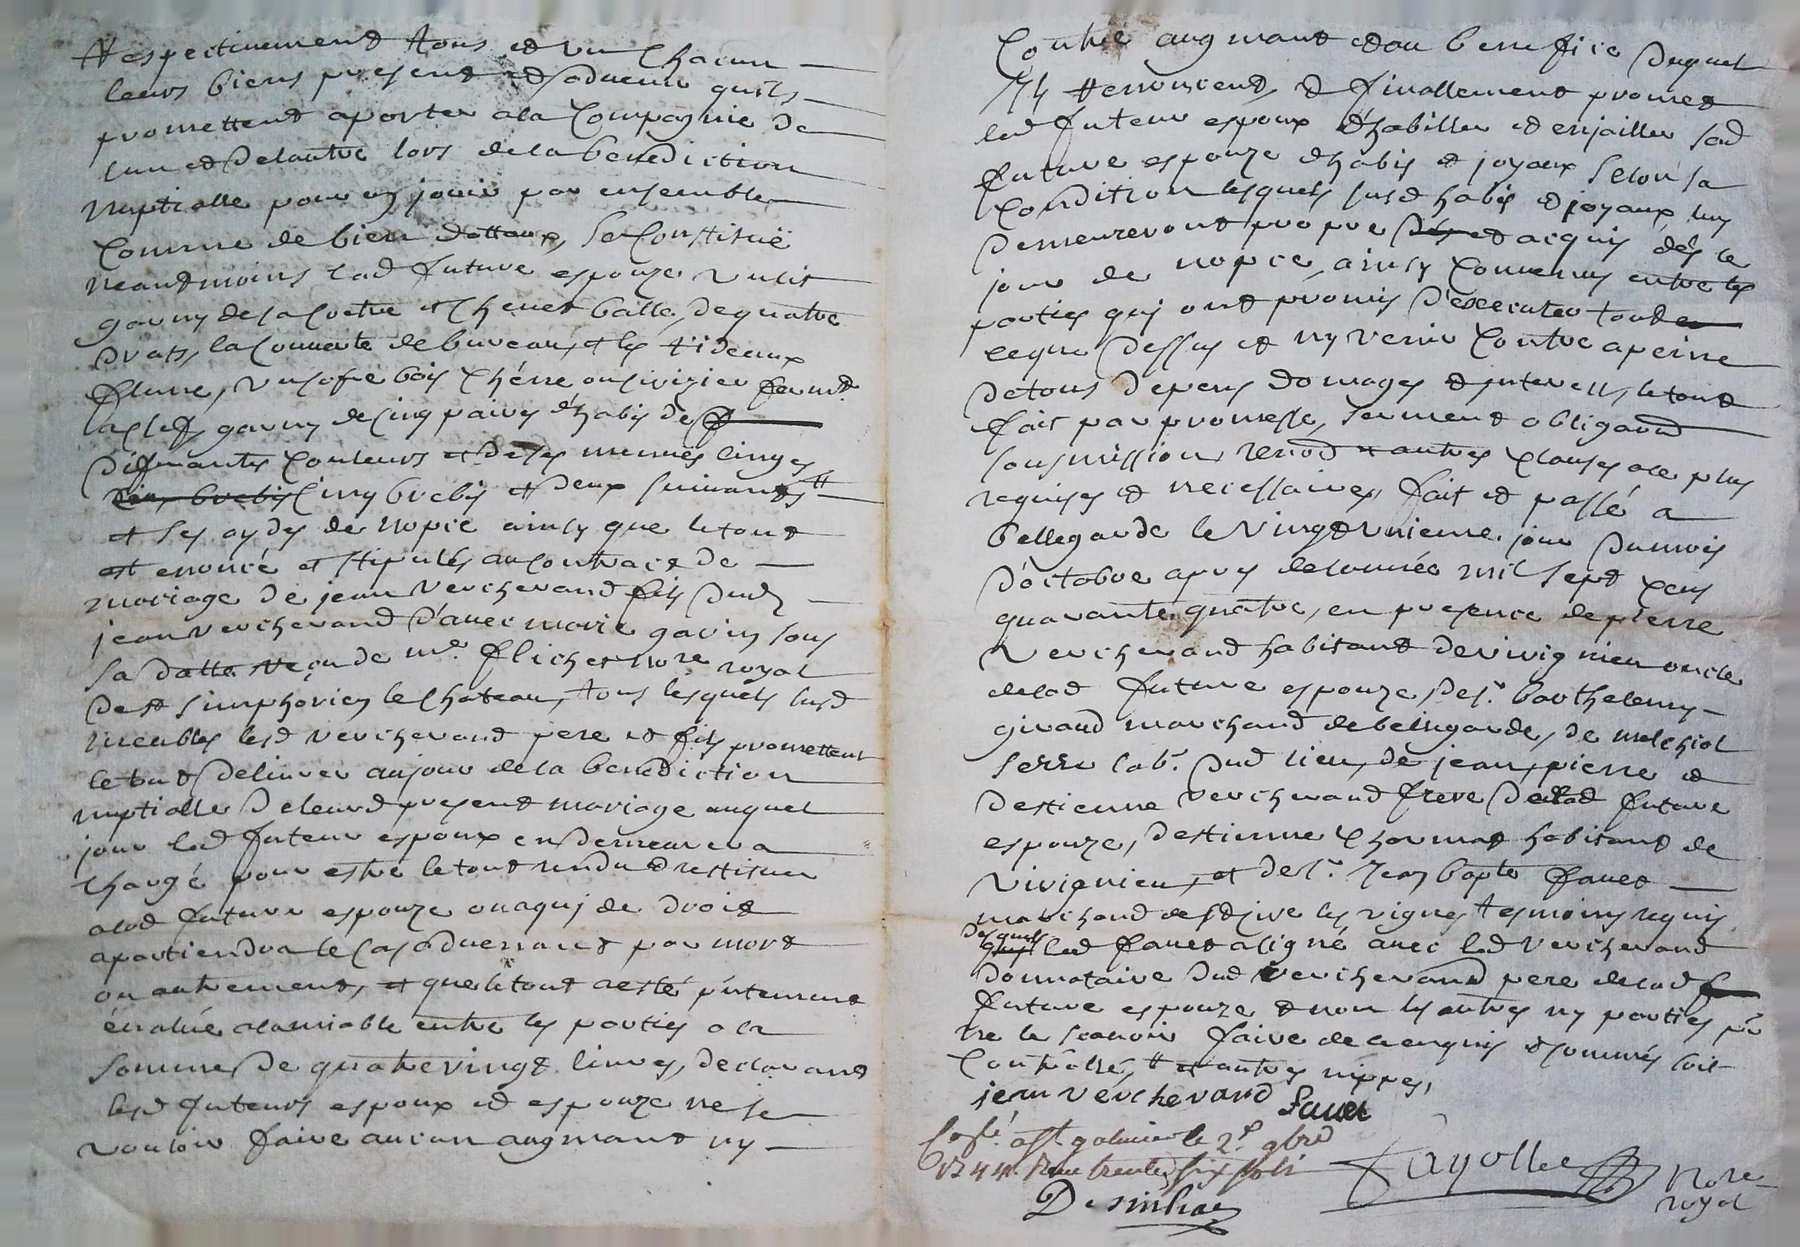 Respectivement tous et un Chacun
leurs biens present et advenir quils
promettent aporter a la Compagnie de
lun et de lautre lors de la benediction
nuptialle pour en jouir par ensemble
Comme de bien dottaux, Se Constituë
neantmoins lad future espouze un lit
garny de sa Coetre et Chevet balle, de quatre
draps, la Couverte de bureau, et les rideaux
un cofre bois Chéne ou sivizier fermt.
a clef, garny de Cinq paires d'habis de
diferantes Couleurs et de ses menues linges
Cinq brebis Cinq brebis et deux suivants
et Ses aydes de nopce ainsy que le tout
est enoncé et stipulés au Contract de
mariage de jean Vercherand fils dud
jean Vercherand d'avec marie garin sous
sa datte Reçu de me. flichet nore royal
de St Simphorien le Chateau, tous lesquels susd
meubles lesd Vercherand pere et fils promettent
le tout delivrer au jour de la benediction
nuptialle de leurd present mariage auquel
jour led futeur espoux en demeurera
Chargé pour estre le tout rendu et restituer
a lad future espouze ou a qui de droit
apartiendra le Cas advenant par mort
ou autrement, et que le tout a esté
évalué a lamiable entre les parties a la
Somme de quatre vingt livres, declarans
lesd futeurs espoux et espouze ne se
vouloir faire aucun augmant ny
Contre augmant et au benefice duquel
Ils Renoncent, et finallement promet
led futeur espoux d'habiller et enjailler lad
future espouze d'habis et joyaux Selon sa
Condition lesquels susd habis et joyaux luy
demeureront propre et acquis dés le
jour de nopce, ainsy Convenus entre les
parties qui ont promis d'executer tout
ce que dessus et ny venir Contre a peine
de tous depens domages et interests, le tout
fait par promesse, serment obligaond
sousmission, renond et autres Clauses a ce plus
requises et necessaires, fait et passé a
bellegarde le vingt unieme jour du mois
d'octobre apres de lannée mil sept Cens
quarante quatre, en presence de pierre
Vercherand habitant de virignieu oncle
de lad future espouze, de sr. barthelemy
giraud marchand de bellegarde, de melchiol
Serre lab. dud lieu, de jean, pierre et
d'estienne Vercherand frere de lad future
espouze, d'estienne Thomas habitant de
virignieu, et de sr. Jean bapte favet
marchand de St Cire les vignes, tesmoins requis
desquels
led favet a signé avec led Vercherand
donnataire dud Vercherand pere de lad
future espouze et non les autres ny parties
ne le scavoir faire de ce enquis et sommés soit
Controllé, et autres nippes,
jean Vercherand favet
Colé. a St galmier le 2e. 9bre
1744. Reçu trente six sols
fayolle nore
royal